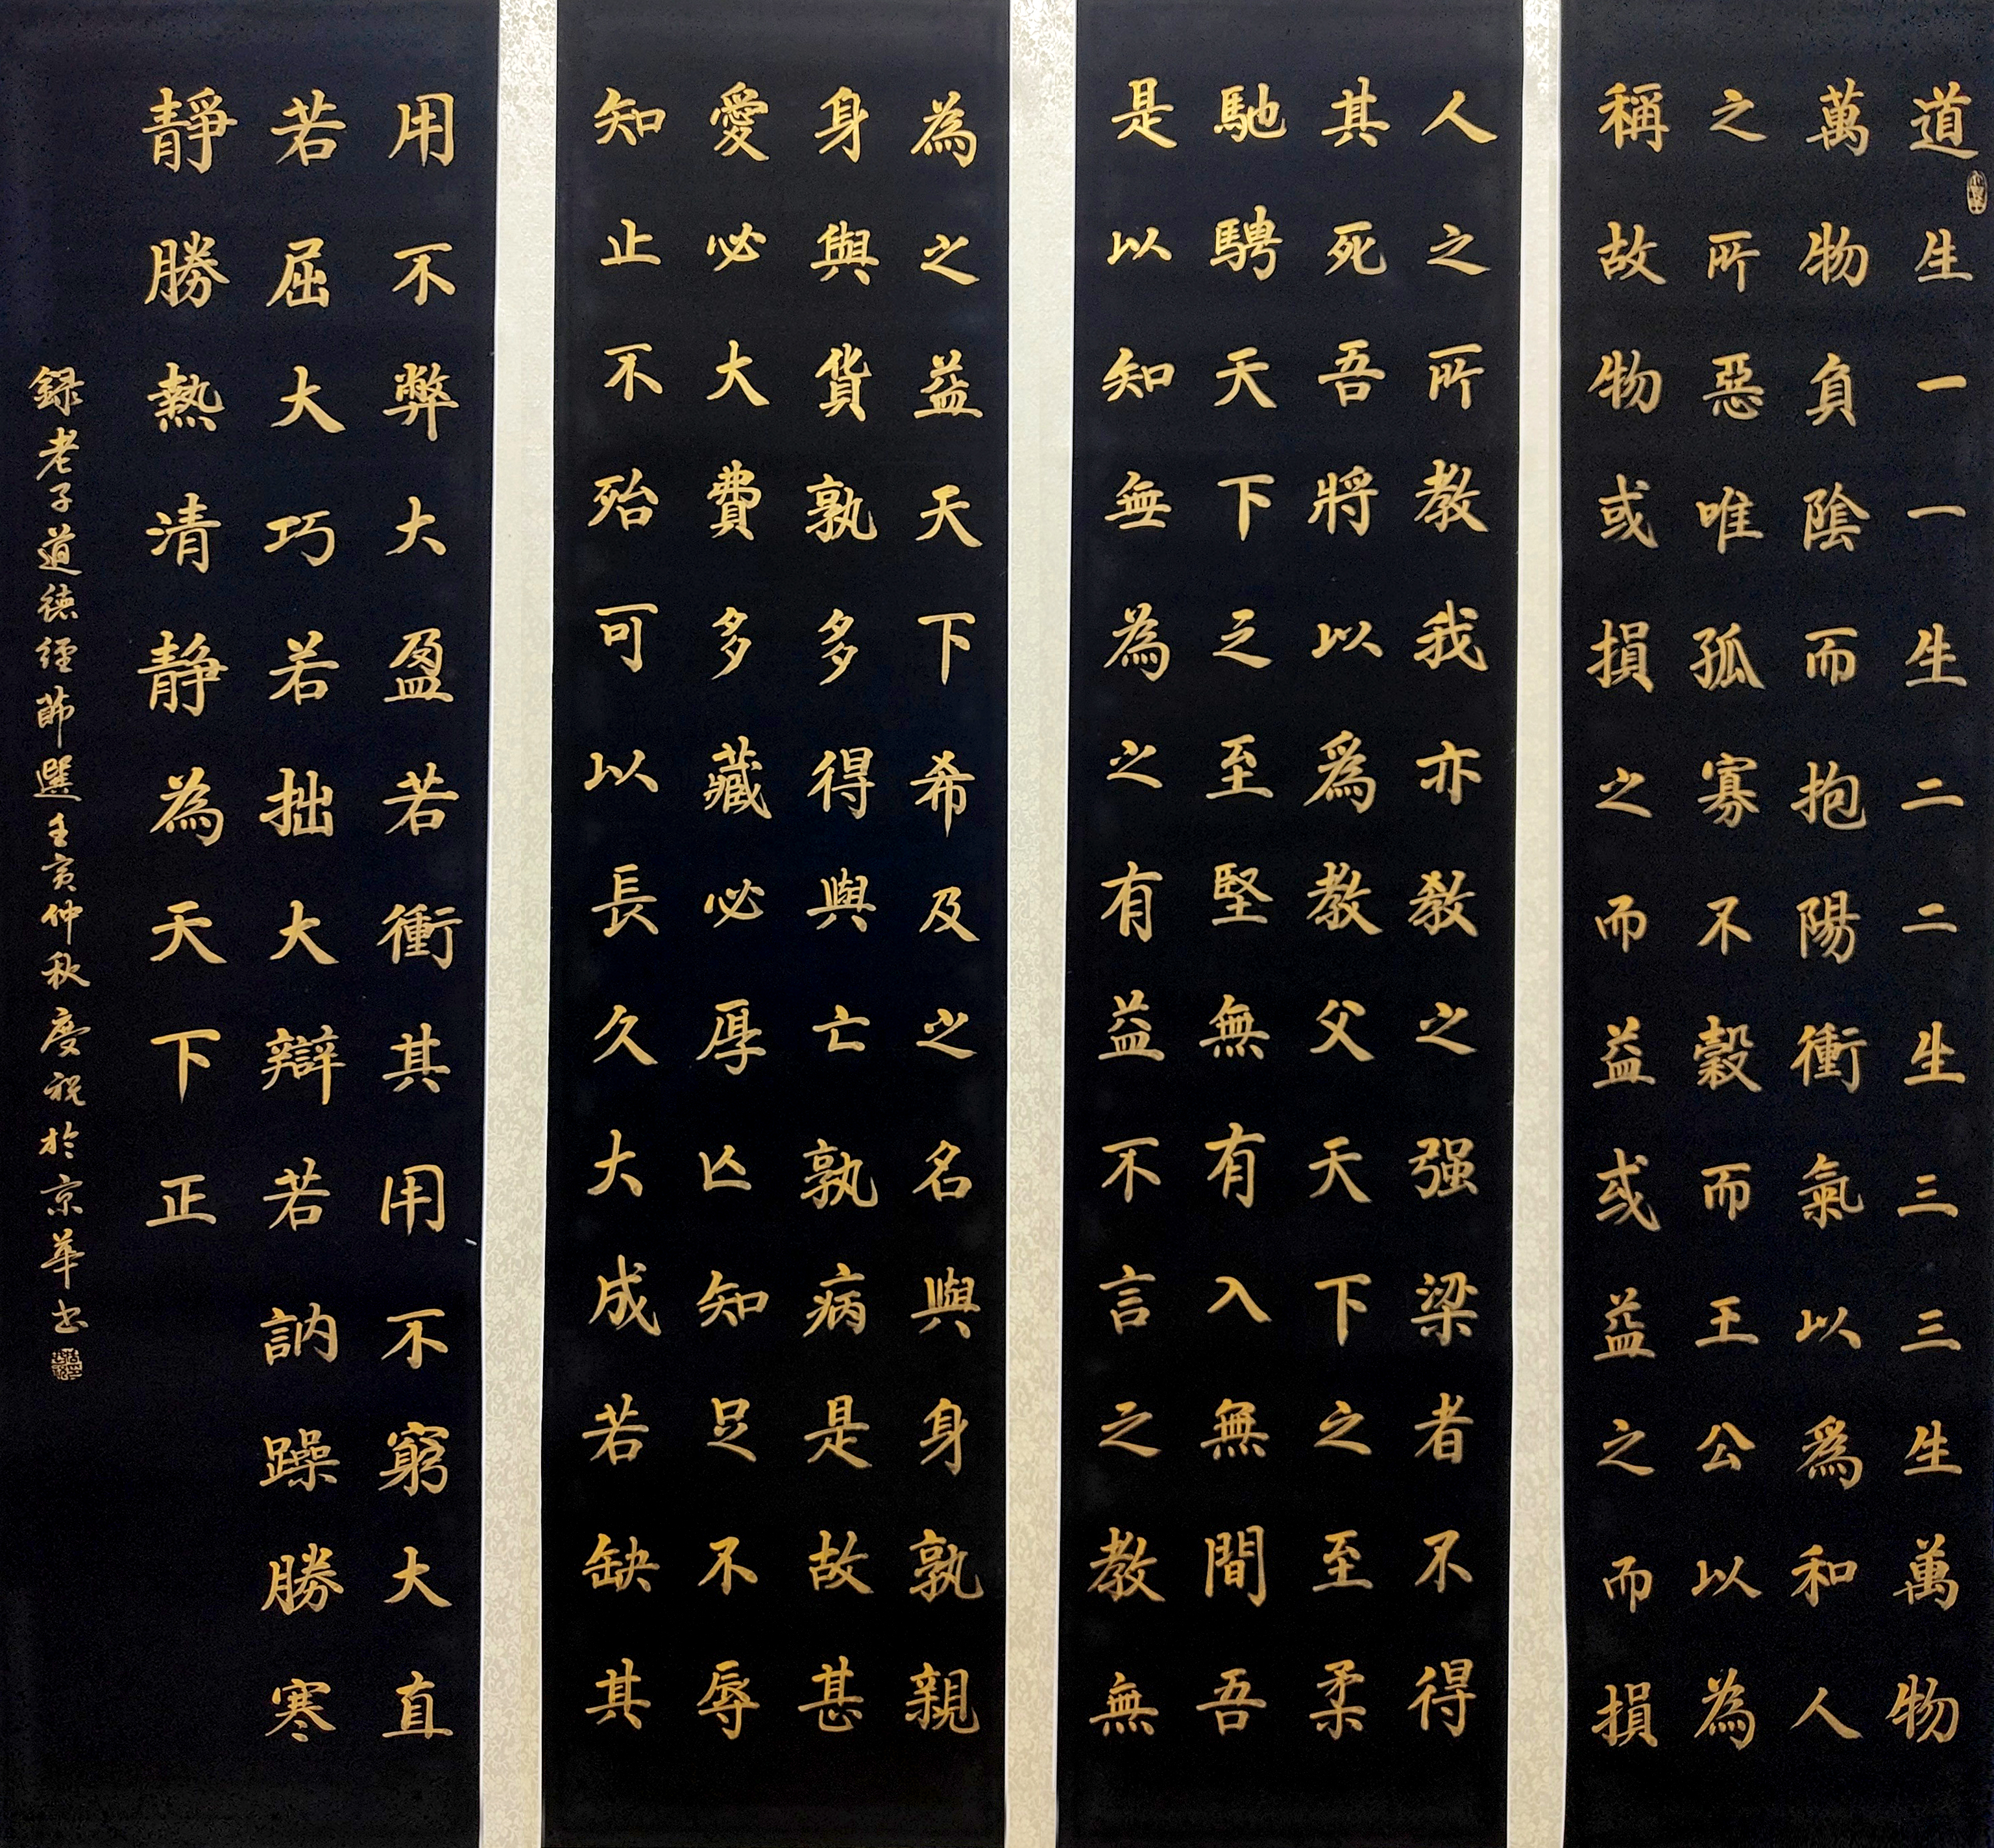 道生一一生二二生三三生萬物
萬物負陰而抱陽衝氣以爲和人
之所惡唯孤寡不穀而王公以為
稱故物或損之而益或益之而損
人之所教我亦教之强梁者不得
其死吾將以爲教父天下之至柔
馳騁天下之至堅無有入無間吾
是以知無為之有益不言之教無
為之益天下希及之名與身孰親
身與貨孰多得與亡孰病是故甚
愛必大費多藏必厚亾知足不辱
知止不殆可以長久大成若缺其
用不弊大盈若衝其用不窮大直
若屈大巧若拙大辯若訥躁勝寒
靜勝熱清静為天下正
録老子道德經節選壬寅仲秋慶祝於京華书